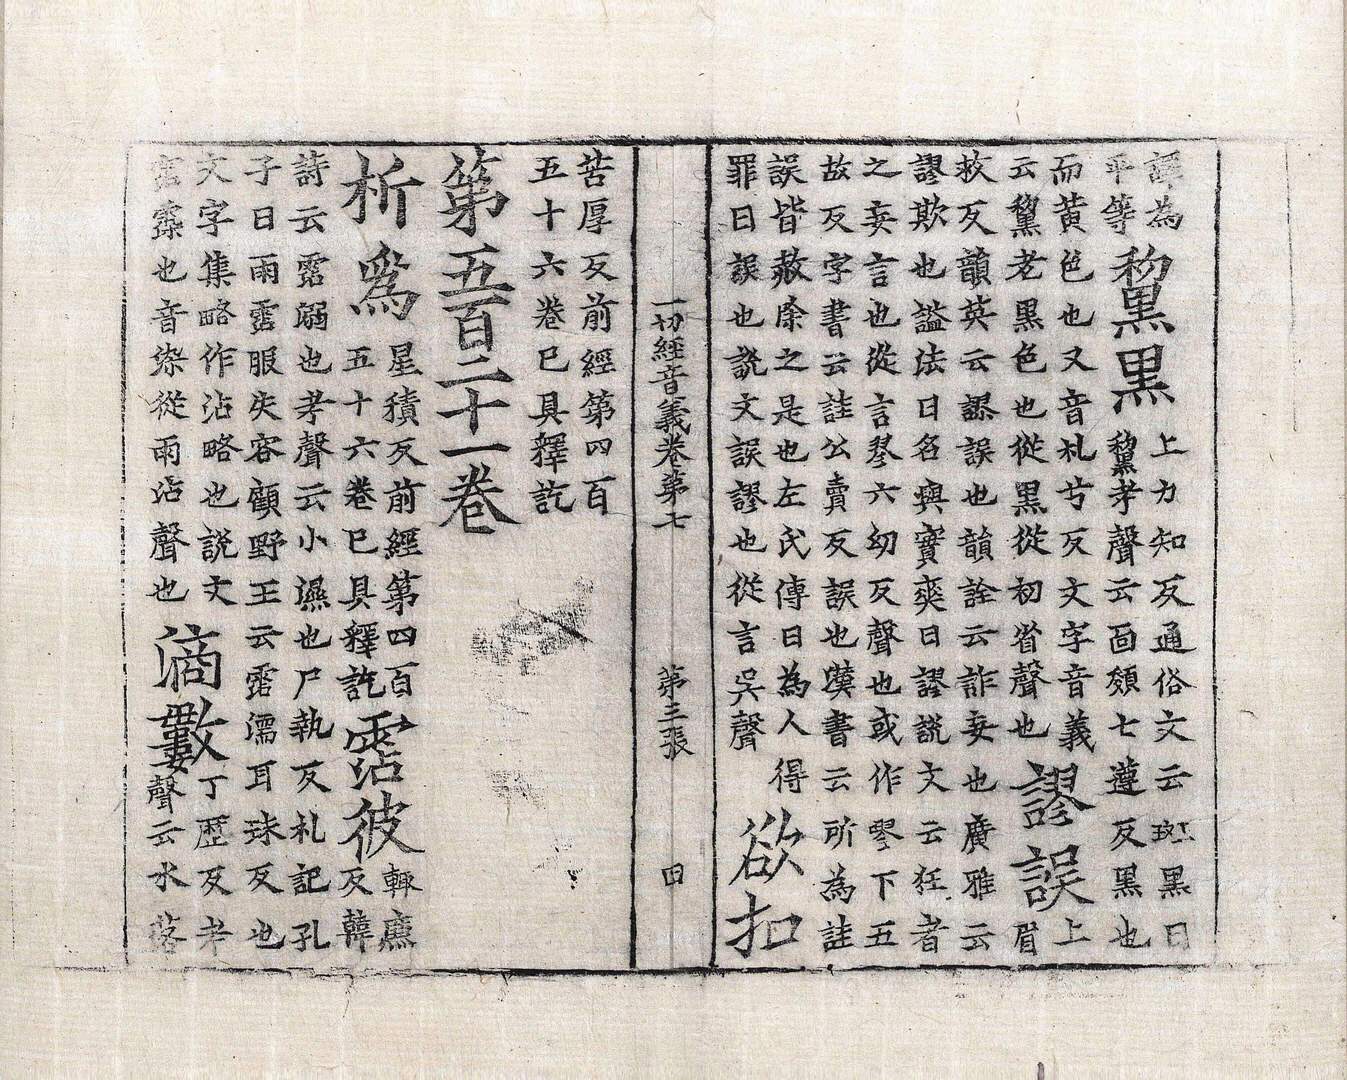 譯為
平等
黧黑
上力知反通俗文云斑黑曰
黧考聲云面皴七遵反黑也
而黃色也又音札兮反文字音義
云黧老黑色也從黑從初省聲也
謬誤
上
眉
救反韻英云謬誤也韻詮云詐妄也廣雅云
謬欺也謚法曰名與實爽曰謬說文云狂者
之妄言也從言翏六幼反聲也或作翏下五
故反字書云詿公賣反誤也漢書云所為詿
誤皆赦除之是也左氏傳曰為人得
罪曰誤也說文誤謬也從言吳聲
欲扣
一切經音義卷第七 第三張 四
苦厚反前經第四百
五十六卷已具釋訖
第五百二十一卷
析為
星積反前經第四百
五十六卷已具釋訖
霑彼
輒廉
反韓
詩云霑溺也考聲云小濕也尸執反礼記孔
子曰雨霑服失容顧野王云霑濡耳珠反也
文字集略作沾略也說文
霑也音染從雨沾聲也
滴數
丁歷反考
聲云水落